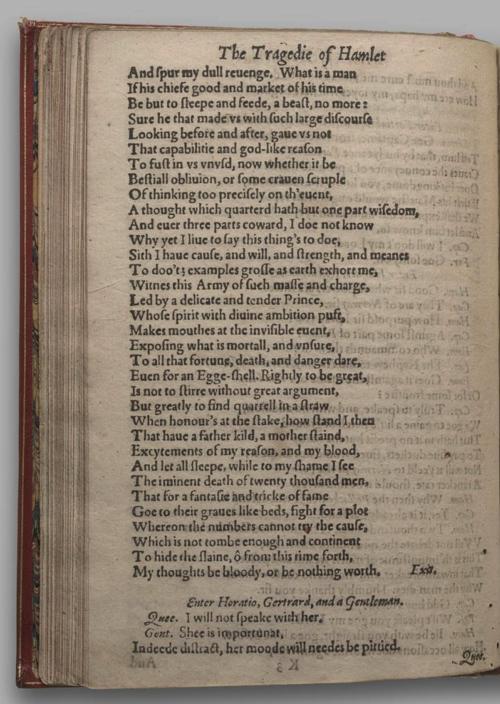 The Tragedie of Hamlet
And ſpur my dull reuenge. What is a man
If his chiefe good and market of his time
Be but to ſleepe and feede, a beaſt, no more:
Sure he that made vs with ſuch large diſcourſe
Looking before and after, gaue vs not
That capabilitie and god-like reaſon
To fuſt in vs vnvſd, now whether it be
Beſtiall obliuion, or ſome crauen ſcruple
Of thinking too preciſely on th'euent,
A thought which quarterd hath but one part wiſedom,
And euer three parts coward, I doe not know
Why yet I liue to ſay this thing's to doe,
Sith I haue cauſe, and will, and ſtrength, and meanes
To doo't; examples groſſe as earth exhort me,
Witnes this Army of ſuch maſſe and charge,
Led by a delicate and tender Prince,
Whoſe ſpirit with diuine ambition puft,
Makes mouthes at the inviſible euent,
Expoſing what is mortall, and vnſure,
To all that fortune, death, and danger dare,
Euen for an Egge-ſhell. Rightly to be great,
Is not to ſtirre without great argument,
But greatly to find quarrell in a ſtraw
When honour's at the ſtake, how ſtand I then
That haue a father kild, a mother ſtaind,
Excytements of my reaſon, and my blood,
And let all ſleepe, while to my ſhame I ſee
The iminent death of twenty thouſand men,
That for a fantaſie and tricke of fame
Goe to their graues like beds, fight for a plot
Whereon the numbers cannot try the cauſe,
Which is not tombe enough and continent
To hide the ſlaine, ô from this time forth,
My thoughts be bloody, or be nothing worth. Exit.
Enter Horatio, Gertrard, and a Gentleman.
Quee. I will not ſpeake with her.
Gent. Shee is importunat,
Indeede diſtract, her moode will needes be pittied.
Quee.